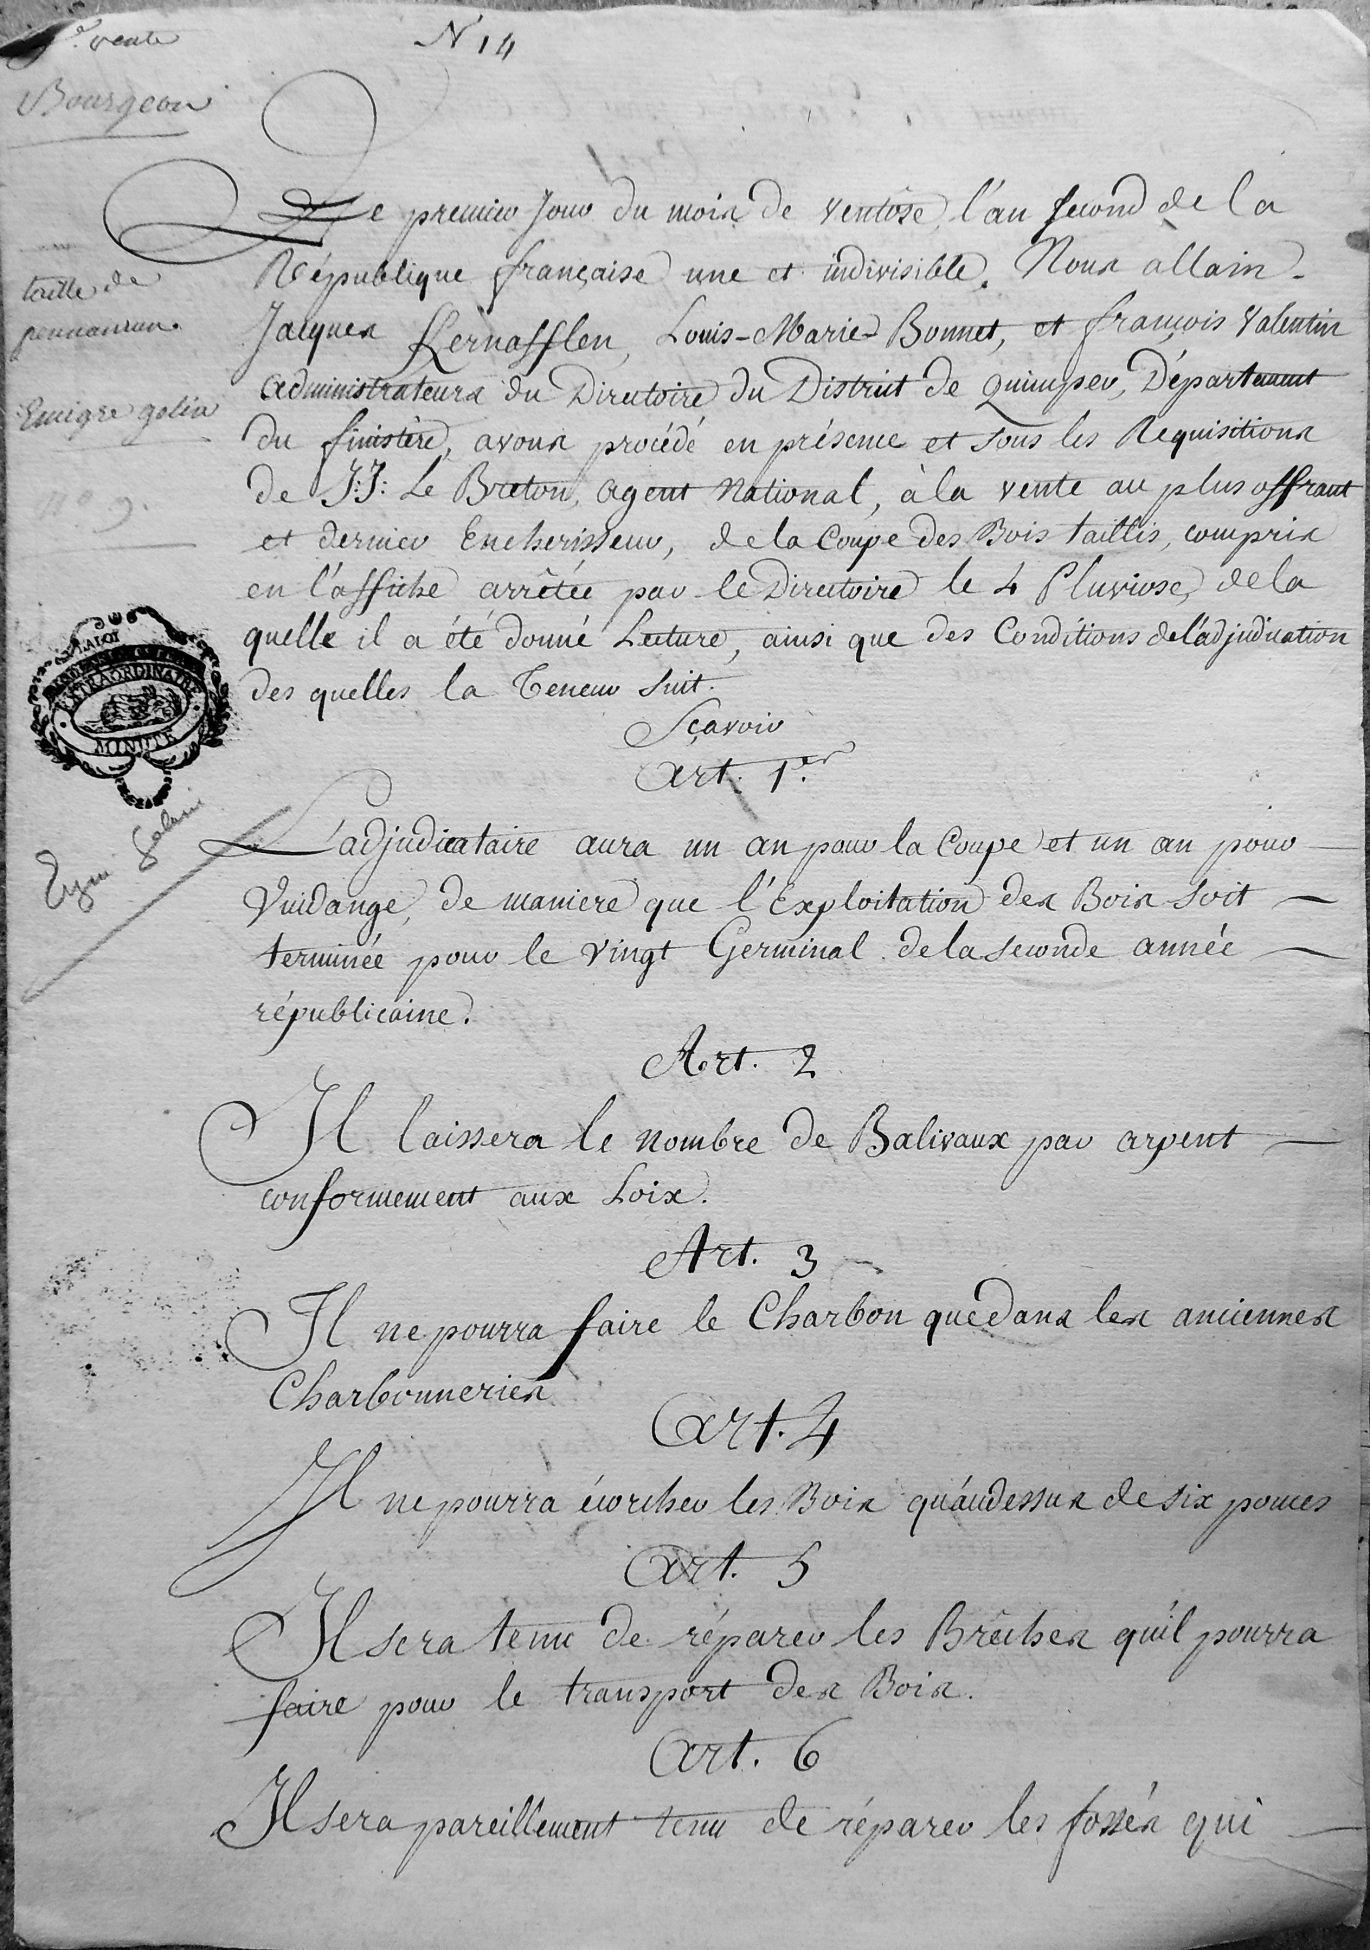 vente
N 14
Bourgeon
Le premier Jour du mois de ventôse, l'an second de la
République française une et indivisible. Nous allain-
Jacques Kernafflen, Louis-Marie-Bonnet, et françois Valentin
administrateurs du Directoire du District de Quimper, Département
du finistère, avons procédé en présence et sous les Requisitions
de J:J: Le Breton, agent National, à la vente au plus offrant
et dernier Encherisseur, de la Coupe des Bois taillis, compris
en l'affiche arrêtée par le Directoire le 4 Pluviose, de la
quelle il a été donné Lecture, ainsi que des Conditions de l'adjudication
des quelles la Teneur suit.
Sçavoir
taille de
Emigré galin
n° 9.
LA LOI
EXTRAORDINAIRE
MINUTE
Art. 1er
L'adjudicataire aura un an pour la Coupe et un an pour
Vuidange, de maniere que l'Exploitation des Bois soit
terminée pour le vingt Germinal de la seconde année
républicaine.
Art. 2
Il laissera le nombre de Balivaux par arpent
conformement aux Loix.
Art. 3
Il ne pourra faire le Charbon que dans les anciennes
Charbonneries
Art. 4
Il ne pourra écorcher les Bois qu'audessus de six pouces
Art. 5
Il sera tenu de réparer les Brêches qu'il pourra
faire pour le transport des Bois.
Art. 6
Il sera pareillement tenu de réparer les fossés qui